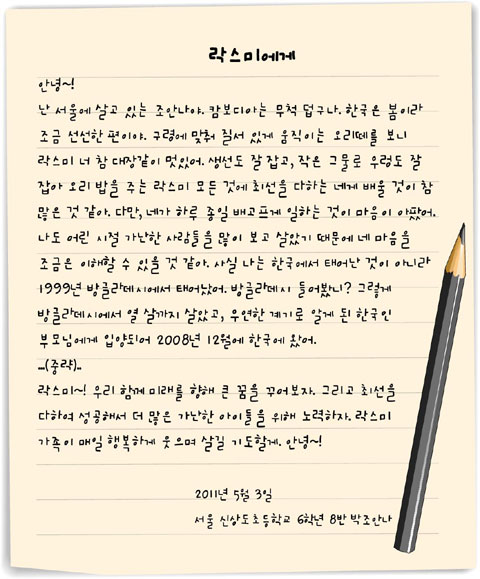 락스미에게
안녕~!
난 서울에 살고 있는 조안나야. 캄보디아는 무척 덥구나. 한국은 봄이라
조금 선선한 편이야. 구령에 맞춰 질서 있게 움직이는 오리떼를 보니
락스미 너 참 대장같이 멋있어. 생선도 잘 잡고, 작은 그물로 우렁도 잘
잡아 오리 밥을 주는 락스미 모든 것에 최선을 다하는 네게 배울 것이 참
많은 것 같아. 다만, 네가 하루 종일 배고프게 일하는 것이 마음이 아팠어.
나도 어린 시절 가난한 사람들을 많이 보고 살았기 때문에 네 마음을
조금은 이해할 수 있을 것 같아. 사실 나는 한국에서 태어난 것이 아니라
1999년 방글라데시에서 태어났어. 방글라데시 들어봤니? 그렇게
방글라데시에서 열 살까지 살았고, 우연한 계기로 알게 된 한국인
부모님에게 입양되어 2008년 12월에 한국에 왔어.
...(중략)..
락스미~! 우리 함께 미래를 향해 큰 꿈을 꾸어보자. 그리고 최선을
다하여 성공해서 더 많은 가난한 아이들을 위해 노력하자. 락스미
가족이 매일 행복하게 웃으며 살길 기도할게. 안녕~!
2011년 5월 3일
서울 신상도초등학교 6학년 8반 박조안나